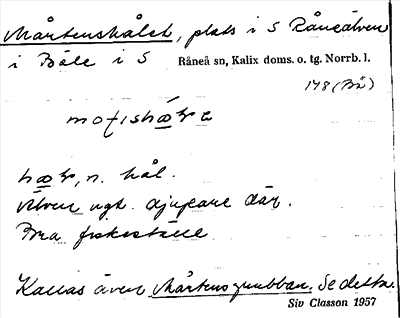 Mårtenshålet, plats i S Råneälven
i Böle i S Råneå sn, Kalix doms. o. tg. Norrb. l.
178 (Bö)
hål.
Älven ngt. djupare där.
Bra fiskeställe
Kallas även Mårtensgrubban. Se detta.
Siv Classon 1957